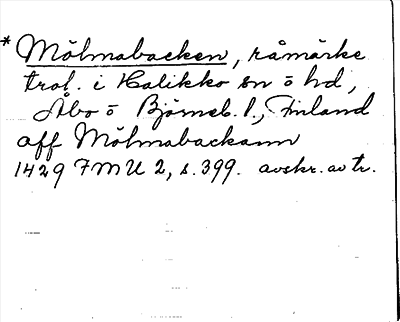 * Mölnabacken, råmärke
trol. i Halikko sn o hd,
Åbo o Björneb. l., Finland
aff Mölnabackann
1429 FMU 2, s. 399. avskr. av tr.